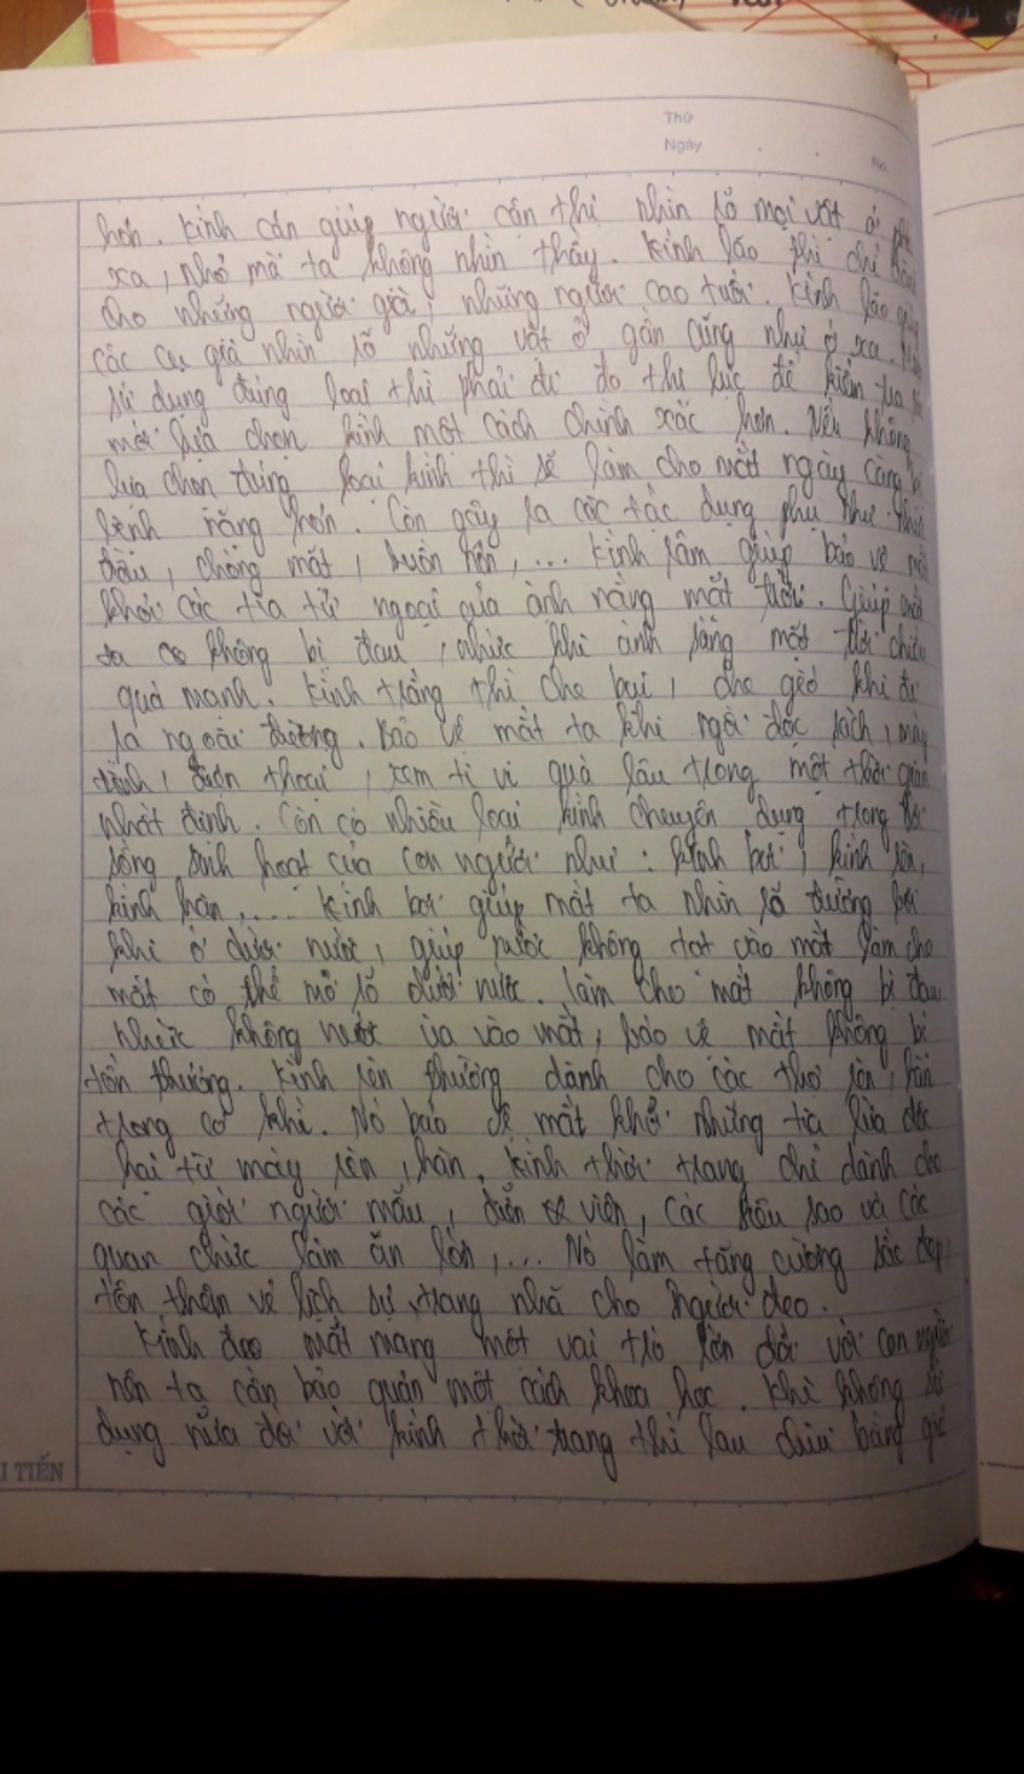 Thứ
Ngày
No.
hơn. Kính cận giúp người cận thị nhìn rõ mọi vật ở
xa, nhỏ mà ta không nhìn thấy. Kính lão thì chỉ dành
cho những người già, những người cao tuổi. Kính lão giúp
các cụ già nhìn rõ những vật ở gần cũng như ở xa.
sử dụng đúng loại thì phải đi đo thị lực để kiểm tra
mới lựa chọn kính một cách chính xác hơn. Nếu không
lựa chọn đúng loại kính thì sẽ làm cho mắt ngày càng bị
bệnh nặng hơn. Còn gây ra các tác dụng phụ như
đầu, chóng mặt, buồn nôn, ... Kính râm giúp bảo vệ mắt
khỏi các tia tử ngoại của ánh nắng mặt trời. Giúp mắt
ta không bị đau, nhức khi ánh sáng mặt trời chiếu
quá mạnh. Kính trắng thì che bụi, che gió khi đi
ra ngoài đường. Bảo vệ mắt ta khi ngồi đọc sách, máy
tính, điện thoại, xem ti vi quá lâu trong một thời gian
nhất định. Còn có nhiều loại kính chuyên dụng trong đời
sống sinh hoạt của con người như: kính bơi, kính rèn,
kính hàn, .... Kính bơi giúp mắt ta nhìn rõ đường bơi
khi ở dưới nước, giúp nước không tạt vào mắt làm cho
mắt có thể mở rõ dưới nước. Làm cho mắt không bị đau
nhức không nước ùa vào mắt, bảo vệ mắt không bị
tổn thương. Kính rèn thường dành cho các thợ rèn, hàn
trong cơ khí. Nó bảo vệ mắt khỏi những tia lửa độc
hại từ máy rèn, hàn. Kính thời trang chỉ dành cho
các giới người mẫu, diễn viên, các siêu sao và các
quan chức làm ăn lớn, ... Nó làm tăng cường sắc đẹp,
tôn thêm vẻ lịch sự, trang nhã cho người đeo.
Kính đeo mắt mang một vai trò lớn đối với con người
nên ta cần bảo quản một cách khoa học. Khi không sử
dụng nữa đối với kính thời trang thì lau chùi bằng
I TIẾN